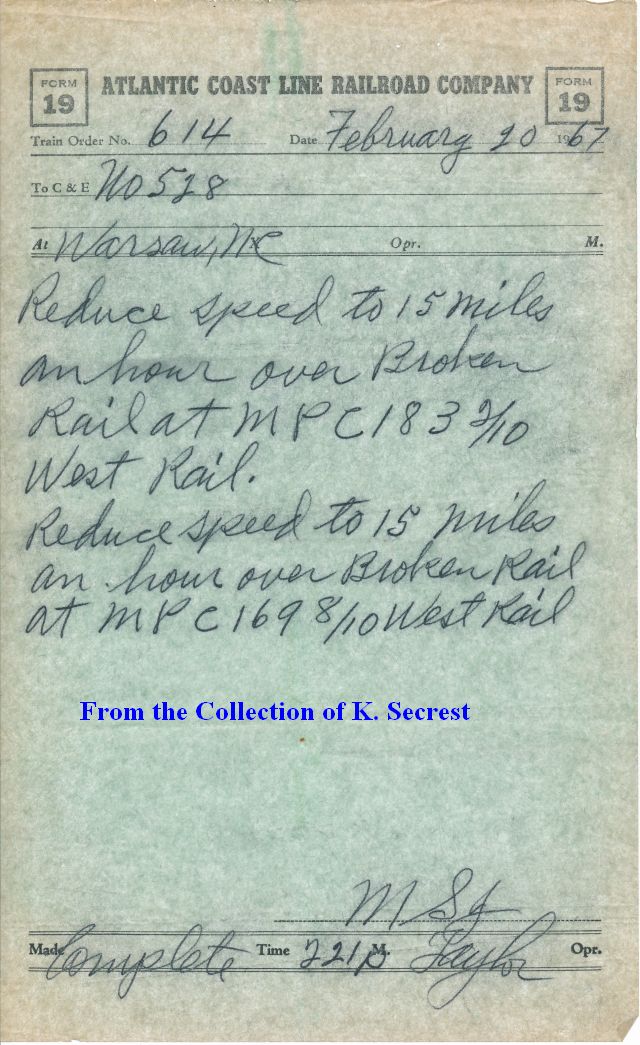 FORM 19 ATLANTIC COAST LINE RAILROAD COMPANY FORM 19
Train Order No. 614 Date February 20 1967
To C & E No 528
At Warsaw, NC X Opr. M.
Reduce speed to 15 miles
an hour over Broken
Rail at MPC 183 2/10
West Rail.
Reduce speed to 15 miles
an hour over Broken Rail
at MPC 169 8/10 West Rail
From the Collection of K. Secrest
Made Complete Time 221 P M. Taylor Opr.